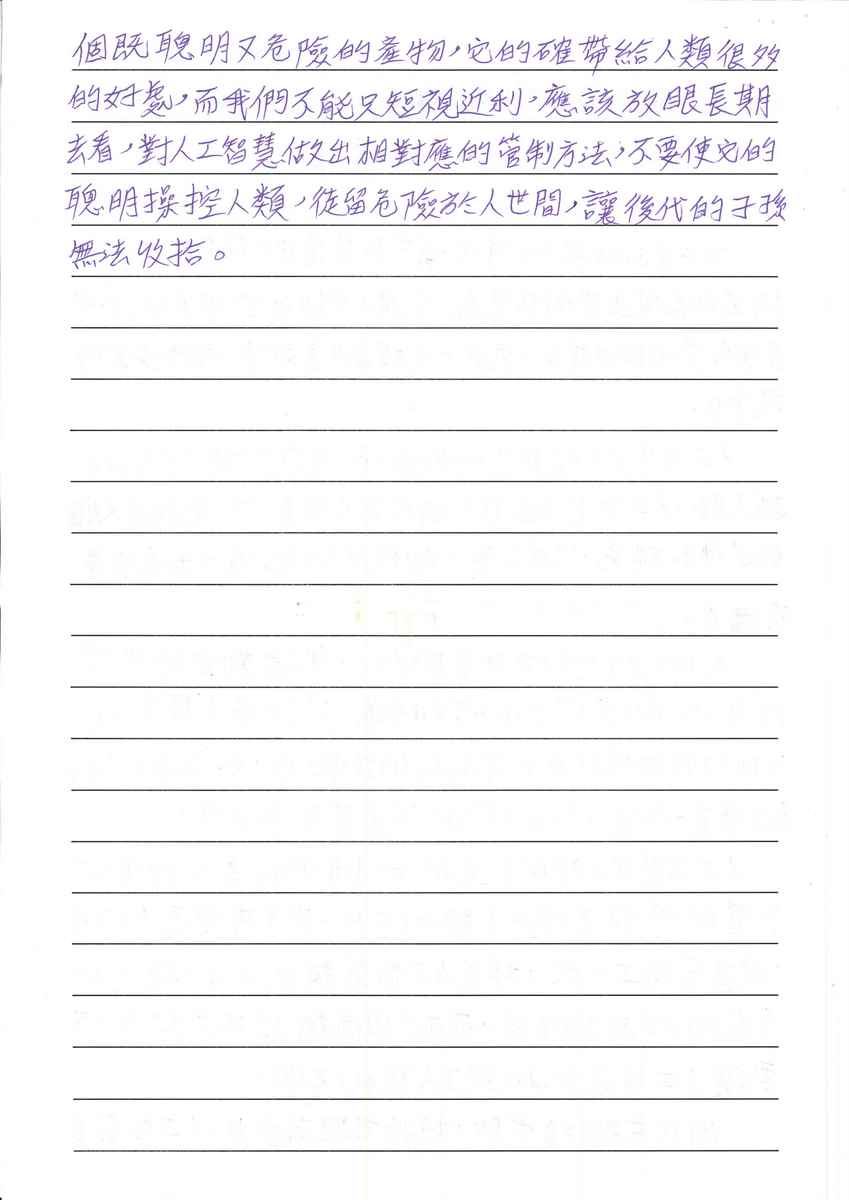 個既聰明又危險的產物，它的確帶給人類很多
的好處，而我們不能只短視近利，應該放眼長期
去看，對人工智慧做出相對應的管制方法，不要使它的
聰明操控人類，徒留危險於人世間，讓後代的子孫
無法收拾。